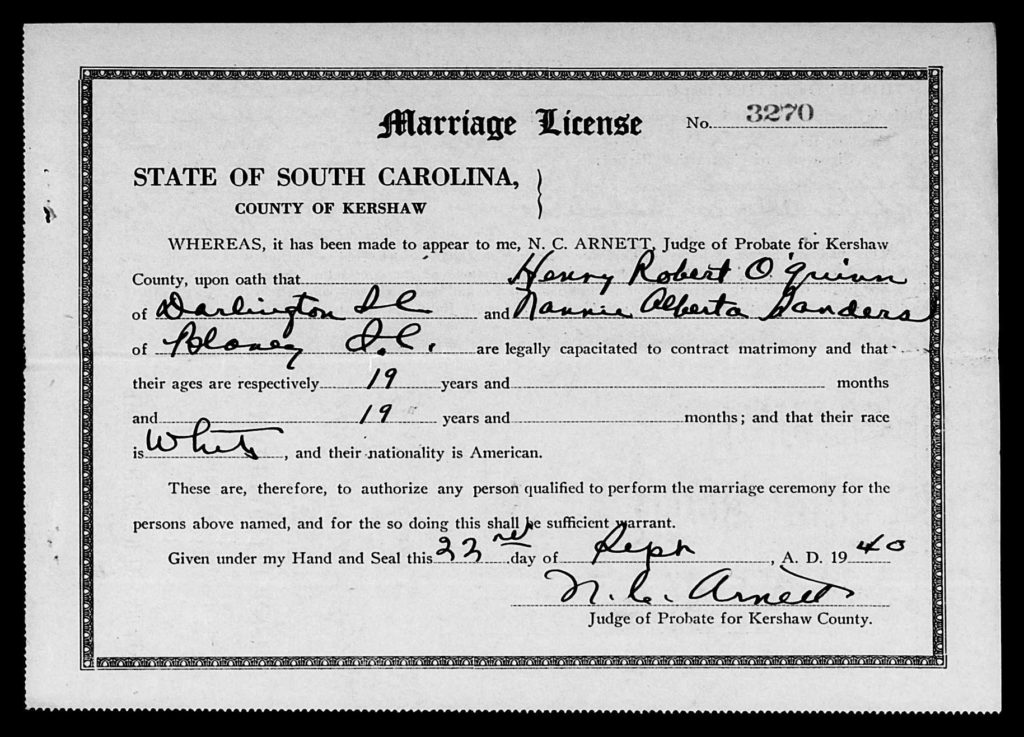 Marriage License No. 3270
STATE OF SOUTH CAROLINA,
COUNTY OF KERSHAW
WHEREAS, it has been made to appear to me, N. C. ARNETT, Judge of Probate for Kershaw
County, upon oath that Henry Robert O'Quinn
of Darlington S C and Nannie Alberta Sanders
of Blaney S.C. are legally capacitated to contract matrimony and that
their ages are respectively 19 years and months
and 19 years and months; and that their race
is White, and their nationality is American.
These are, therefore, to authorize any person qualified to perform the marriage ceremony for the
persons above named, and for the so doing this shall be sufficient warrant.
Given under my Hand and Seal this day of , A. D. 1940
N. C. Arnett
Judge of Probate for Kershaw County.